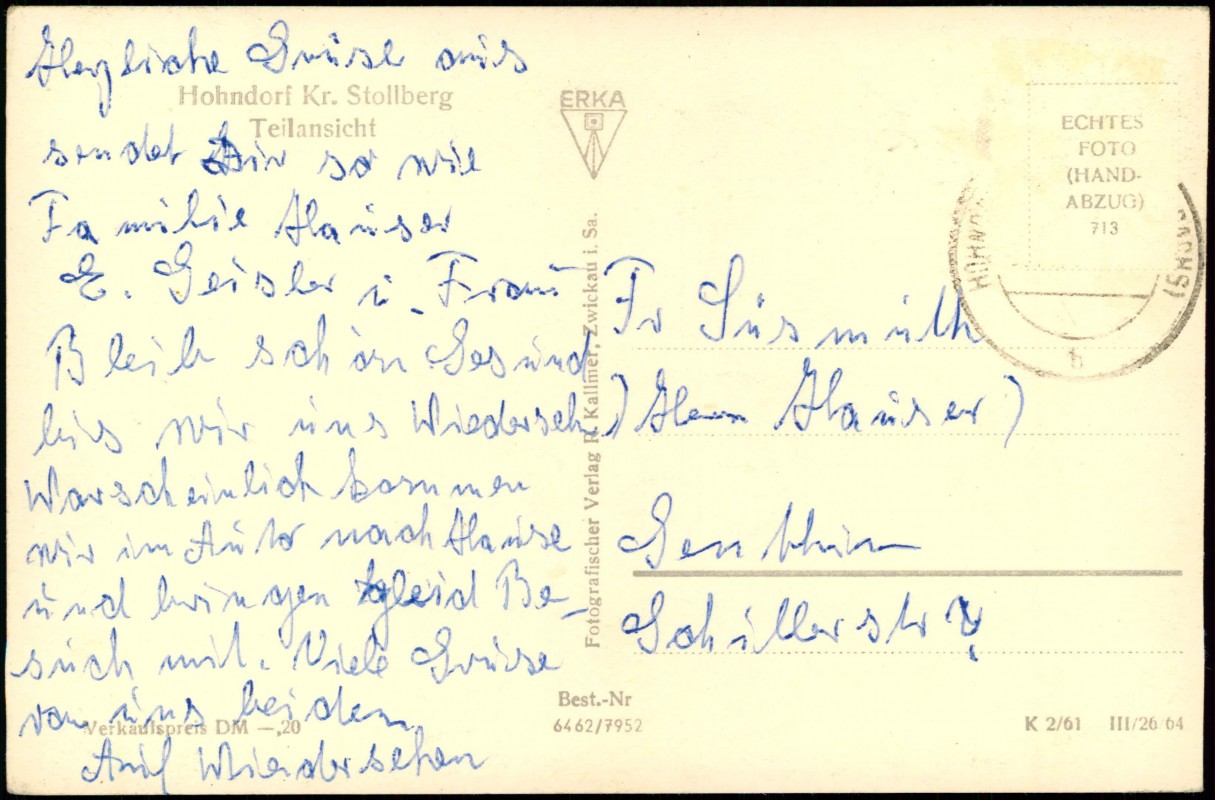 Herzliche Grüse aus
Hohndorf Kr. Stollberg
Teilansicht
sendet Dir so wie
Familie Hauser
E. Geisler u. Frau
Bleib schön Gesund
bis wir uns Wiedersehn
Warscheinlich kommen
wir im Auto nach Hause
und bringen gleid Be-
such mit. Viele Grüse
von uns beiden
Verkaufspreis DM —,20
Auf Wiedersehen
ERKA
Fotografischer Verlag R. Kallmer, Zwickau i. Sa.
Best.-Nr
6462/7952
ECHTES
FOTO
(HAND-
ABZUG)
713
Fr Süsmuth
(Herr Hauser)
Genthin
Schillerstr
K 2/61 III/26 64